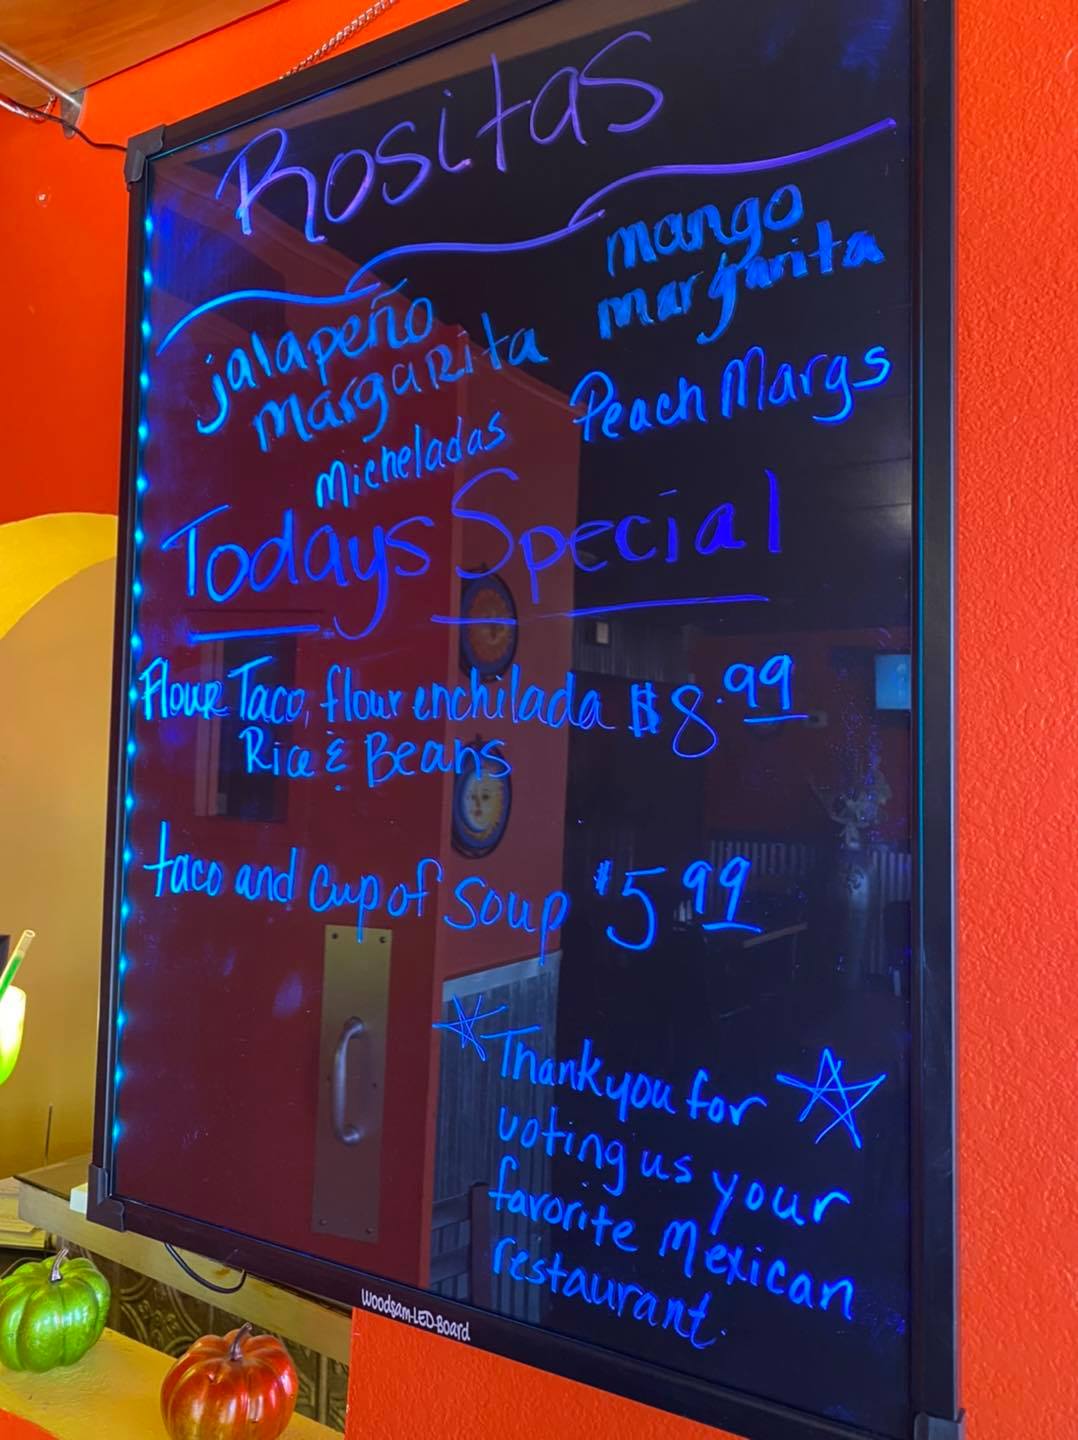 Rositas
jalapeño
margaRita
Micheladas
mango
margarita
Peach Margs
Todays Special
Flour Taco, flour enchilada $8.99
Rice & Beans
taco and cup of soup $5.99
Thank you for
voting us your
favorite Mexican
restaurant.
Woodsam-LED-Board